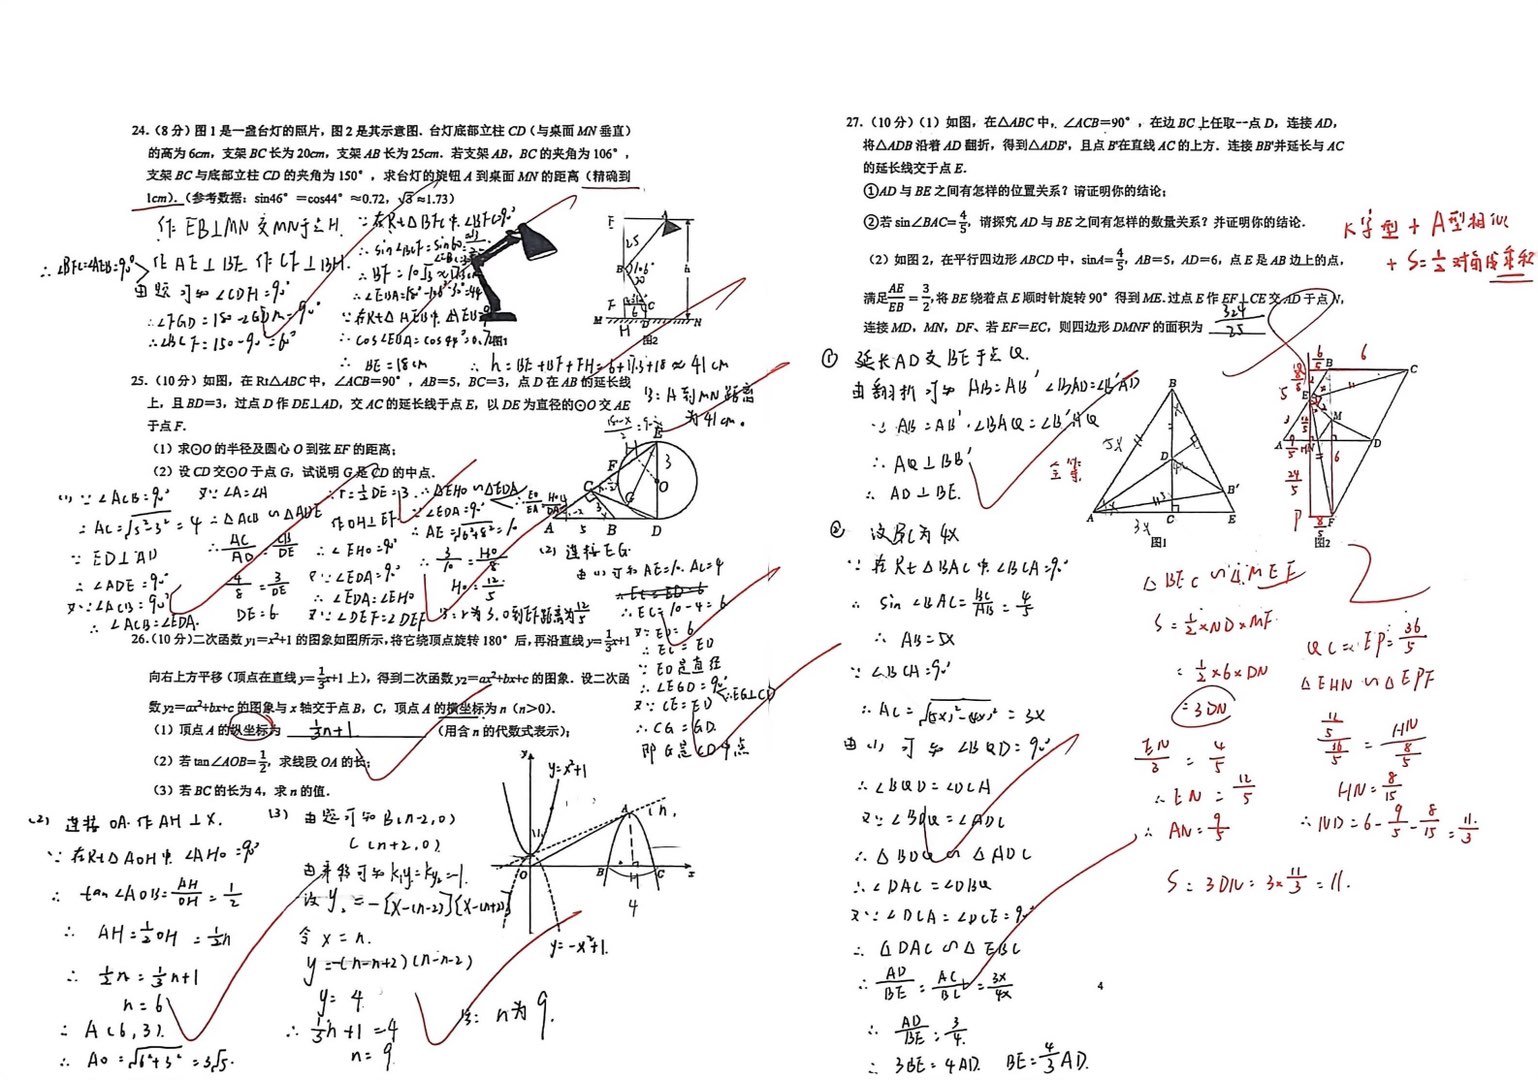 24.（8 分）图 1 是一盏台灯的照片，图 2 是其示意图．台灯底部立柱 CD（与桌面 MN 垂直）
的高为 6cm，支架 BC 长为 20cm，支架 AB 长为 25cm．若支架 AB，BC 的夹角为 106°，
支架 BC 与底部立柱 CD 的夹角为 150°，求台灯的旋钮 A 到桌面 MN 的距离（精确到
1cm）．（参考数据：sin46°＝cos44°≈0.72，√3≈1.73）
作 EB⊥MN 交 MN于点 H.
作 AE⊥BE 作 CF⊥BH.
∴∠BFC=∠AEB=90°
由题可知 ∠CDH=90°
∴∠BCF=150-90=60°
∵在Rt△BFC中 ∠BFC=90°
∴BE=18cm
∴h=BE+BF+FH=6+17.3+18≈41cm
答：A到MN距离
为41cm.
图1
图2
25.（10 分）如图，在 Rt△ABC 中，∠ACB＝90°，AB＝5，BC＝3，点 D 在 AB 的延长线
上，且 BD＝3，过点 D 作 DE⊥AD，交 AC 的延长线于点 E，以 DE 为直径的⊙O 交 AE
于点 F．
（1）求⊙O 的半径及圆心 O 到弦 EF 的距离；
（2）设 CD 交⊙O 于点 G，试说明 G 是 CD 的中点．
(1) ∵∠ACB=90°
∴AC=√5²-3²=4
∵ED⊥AD
∴∠ADE=90°
又∵∠ACB=90°
∴∠ACB=∠EDA.
又∵∠A=∠A
∴△ACB∽△ADE
∴AC/AD=CB/DE
4/8=3/DE
DE=6
∴r=½DE=3
作OH⊥EF
∴∠EHO=90°
又∵∠EDA=90°
∴∠EDA=∠EHO
又∵∠DEF=∠DEF
∴△EHO∽△EDA
∵∠EDA=90°
∴AE=√6²+8²=10
∴3/10=HO/8
HO=12/5
答:r为3，O到EF距离为12/5
(2) 连接EG.
由(1)可知 AE=10. AC=4
∴EC=10-4=6
又∵ED=6
∴EC=ED
∵ED是直径
∴∠EGD=90° ∴EG⊥CD
又∵CE=ED
∴CG=GD.
即G是CD中点
26.（10 分）二次函数 y₁＝x²+1 的图象如图所示，将它绕顶点旋转 180°后，再沿直线 y＝1/3x+1
向右上方平移（顶点在直线 y＝1/3x+1 上），得到二次函数 y₂＝ax²+bx+c 的图象．设二次函
数 y₂＝ax²+bx+c 的图象与 x 轴交于点 B，C，顶点 A 的横坐标为 n（n>0）．
（1）顶点 A 的纵坐标为 1/3n+1 （用含 n 的代数式表示）；
（2）若 tan∠AOB＝1/2，求线段 OA 的长；
（3）若 BC 的长为 4，求 n 的值．
(2) 连接 OA. 作AH⊥X.
∵在Rt△AOH中 ∠AHO=90°
∴tan∠AOB=AH/OH=1/2
∴AH=½OH=½n
∴½n=⅓n+1
n=6
∴A(6,3).
∴AO=√6²+3²=3√5.
(3) 由题可知B(n-2,0)
C(n+2,0)
设y₂=-[X-(n-2)][X-(n+2)]
令x=n.
y=-(n-n+2)(n-n-2)
y=4
∴⅓n+1=4
n=9
答：n为9.
y=x²+1
y=-x²+1.
27.（10 分）（1）如图，在△ABC 中，∠ACB＝90°，在边 BC 上任取一点 D，连接 AD，
将△ADB 沿着 AD 翻折，得到△ADB′，且点 B′在直线 AC 的上方．连接 BB′并延长与 AC
的延长线交于点 E．
①AD 与 BE 之间有怎样的位置关系？请证明你的结论；
②若 sin∠BAC＝4/5，请探究 AD 与 BE 之间有怎样的数量关系？并证明你的结论．
（2）如图 2，在平行四边形 ABCD 中，sinA＝4/5，AB＝5，AD＝6，点 E 是 AB 边上的点，
满足AE/EB＝3/2，将 BE 绕着点 E 顺时针旋转 90°得到 ME．过点 E 作 EF⊥CE交 AD 于点 N，
连接 MD，MN，DF、若 EF＝EC，则四边形 DMNF 的面积为 324/25
K字型 + A型相似
+ S=½对角线乘积
① 延长AD交BE于点Q.
由翻折可知 AB=AB′ ∠BAD=∠B′AD
∵AB=AB′ ∠BAQ=∠B′AQ
∴AQ⊥BB′
∴AD⊥BE.
② 设BC为4x
∵在Rt△BAC中∠BCA=90°
∴sin∠BAC=BC/AB=4/5
∴AB=5x
∵∠BCA=90°
∴AC=√(5x)²-(4x)²=3x
由(1)可知∠BQD=90°
∴∠BQD=∠DCA
又∵∠BDQ=∠ADC
∴△BDQ∽△ADC
∴∠DAC=∠DBQ
又∵∠DCA=∠DCE=90°
∴△DAC∽△EBC
∴AD/BE=AC/BC=3x/4x
∴AD/BE=3/4
∴3BE=4AD. BE=4/3AD.
图1
图2
△BEC∽△MEF
S=½×ND×MF
=½×6×DN
=3DN
EN/3=4/5
∴EN=12/5
∴AN=9/5
QC=EP=36/5
△EHN∽△EPF
HN=8/15
∴ND=6-9/5-8/15=11/3
S=3DN=3×11/3=11.
4